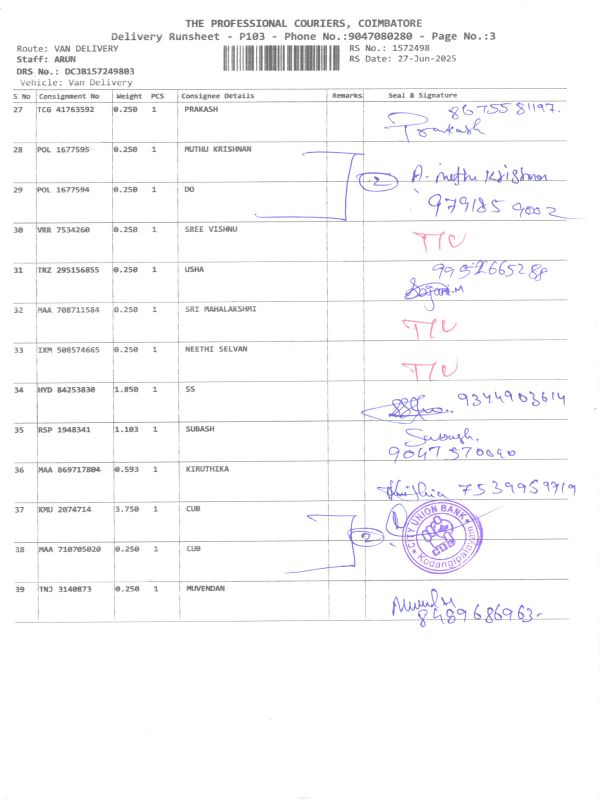 THE PROFESSIONAL COURIERS, COIMBATORE
Delivery Runsheet - P103 - Phone No.:9047080280 - Page No.:3
Route: VAN DELIVERY RS No.: 1572498
Staff: ARUN RS Date: 27-Jun-2025
DRS No.: DCJB157249803
Vehicle: Van Delivery
S No Consignment No Weight PCS Consignee Details Remarks Seal & Signature
27 TCG 41763592 0.250 1 PRAKASH 8675581197.
Prakash
28 POL 1677595 0.250 1 MUTHU KRISHNAN 2 A. Muthu Krishnan
29 POL 1677594 0.250 1 DO 979185 9002
30 VRR 7534260 0.250 1 SREE VISHNU T/C
31 TRZ 295156855 0.250 1 USHA 9952665288
32 MAA 708711584 0.250 1 SRI MAHALAKSHMI T/C
33 IXM 508574665 0.250 1 NEETHI SELVAN T/C
34 HYD 84253830 1.850 1 SS 9344903614
35 RSP 1948341 1.103 1 SUBASH
9047570090
36 MAA 869717804 0.593 1 KIRUTHIKA 7539959919
37 KMU 2074714 3.750 1 CUB CITY UNION BANK
38 MAA 710705020 0.250 1 CUB 2
39 TNJ 3140873 0.250 1 MUVENDAN
8489686963-